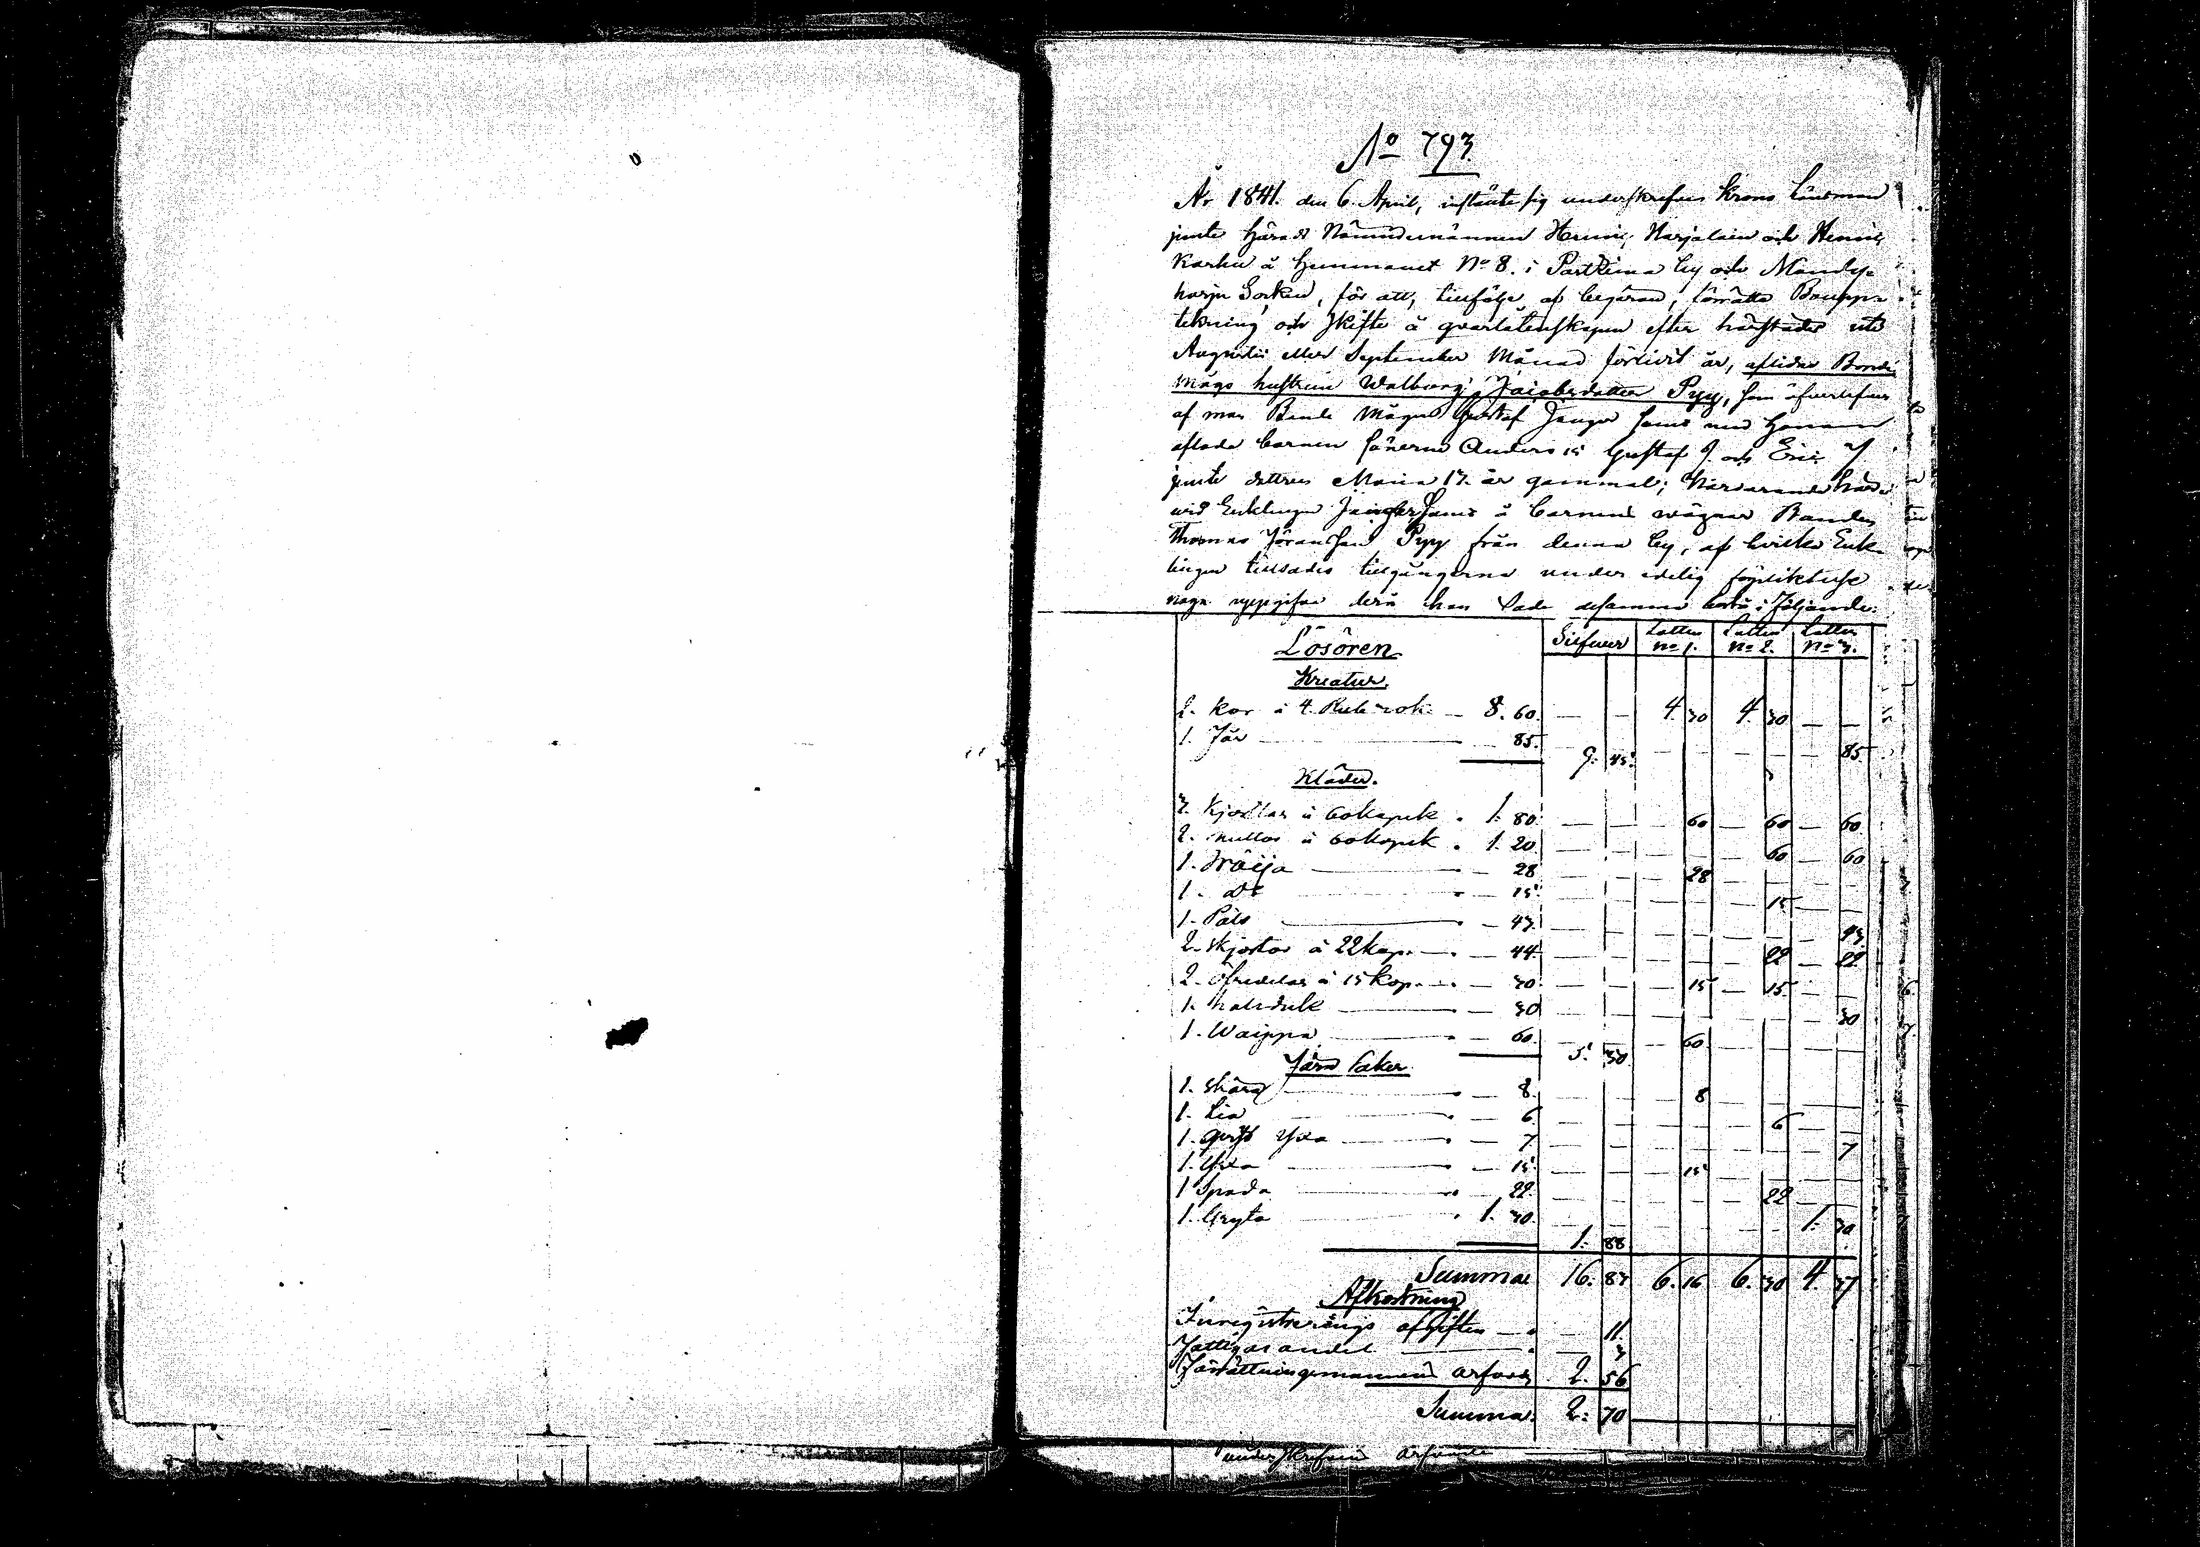 No 793.
År 1841. den 6. April, instälte sig underskrefven Krono Länsman
jemte Härads Nämndemännen Henric Harjalain och Henric
Karhu å Hemmanet No 8. i Partzima by och Mändy-
harju Socken, för att, tillfölje af begäran, förrätta Boupp-
tekning och skifte å qvarlåtenskapen efter härstädes uti
Augusti eller September Månad förlidit år, aflidne Bonde
mågs hustrun Walborg Jacobsdotter Pyy, som öfverlefves
af man Bonde Mågen Gustaf Jänger samt med honom
aflade barnen sönerne Anders 15 Gustaf 9. och Eric 7
jemte dottren Maria 17. år gammal; Närvarande härvid
wid Enklingen Jänger samt å barnens wägnar Bonden
Thomas Jöransson Pyy från denna by, af hvilka Enk-
lingen tillsades tillgångerna under edelig förpliktelse
noga uppgifva derå han sade desamma bestå i följande:
Lösören Silfver Lotten No 1. Lotten No 2. Lotten No 3.
Kreatur.
2. Kor à 4. Rub 30 k. — 8. 60. — — 4. 30 4. 30 — —
1. Får — 85. 9. 45. — — — — — 85
Kläder.
3. Kjortlar à 60 kopek . 1. 80. — — — 60 — 60 — 60.
2. à 60 kopek . 1. 20. — — — — — 60 — 60
1. Tröija — 28 — — — 28 — — — —
1. do — 15. — — — — — 15 — —
1. Päls — 43. — — — — — — — 43.
2. Skjortor à 22 kop. — 44. — — — — — 22 — 22
2. Öfredelar à 15 kop. — 30. — — — 15 — 15 — —
1. halsduk — 30 — — — — — — — 30
1. Waippa — 60. 5. 50. — 60. — — — —
Järn Saker.
1. Skära — 8. — — — 8 — — — —
1. Lia — 6 — — — — — 6 — —
1. Qvist Yxa — 7 — — — — — — — 7
1. Yxa — 15. — — — 15 — — — —
1 Spada — 22. — — — — — 22 — —
1. Gryta . 1. 30. 1. 88 — — — — 1. 30
Summa 16. 83 6. 16 6. 30 4. 37
Afkortning
Inregistrerings afgiften — — 11.
Fattigas andel — 3
Förrättningsmännens arfvode 2. 56
Summa. 2. 70
underskrefvne